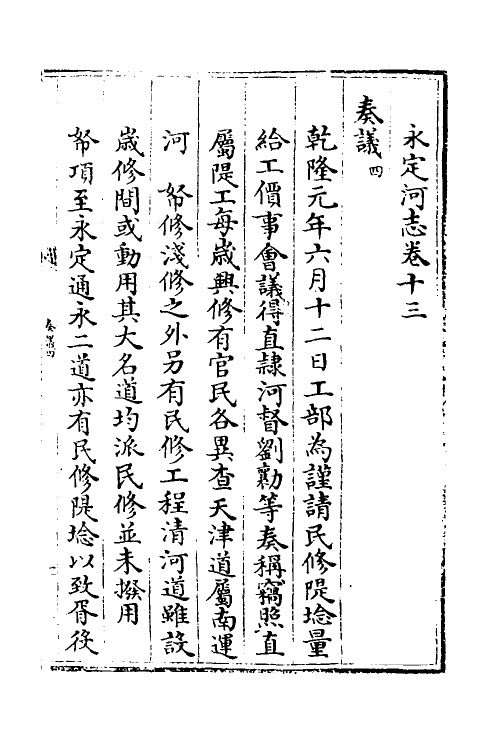 永定河志卷十三
奏議四
乾隆元年六月十二日工部為謹請民修隄埝量
給工價事會議得直隷河督劉勷等奏稱竊照直
屬隄工每歲興修有官民各異查天津道屬南運
河 帑修淺修之外另有民修工程清河道雖設
歲修間或動用其大名道均派民修並未撥用
帑項至永定通永二道亦有民修隄埝以致胥役
奏議四